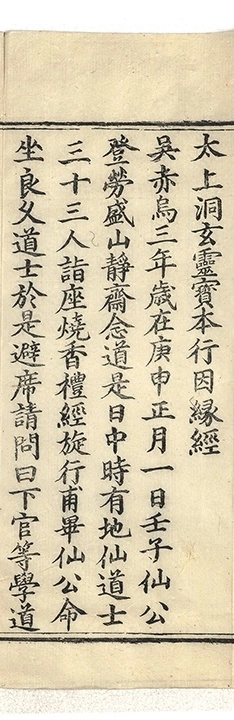 太上洞玄靈寶本行因緣經
吳赤烏三年歲在庚申正月一日壬子仙公
登勞盛山靜齋念道是日中時有地仙道士
三十三人詣座燒香禮經旋行甫畢仙公命
坐良久道士於是避席請問曰下官等學道